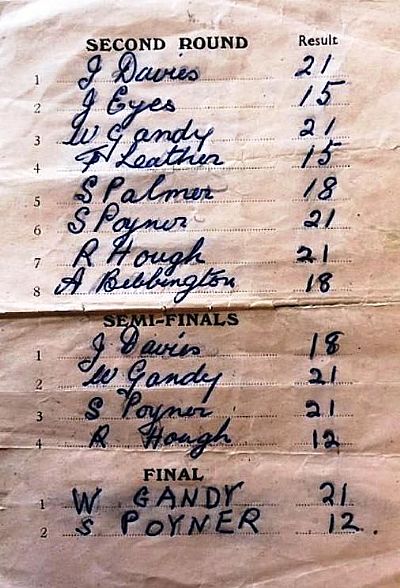 SECOND ROUND Result
1 J Davies 21
2 J Eyes 15
3 W Gandy 21
4 F Leather 15
5 S Palmer 18
6 S Poyner 21
7 R Hough 21
8 A Bebbington 18
SEMI-FINALS
1 J Davies 18
2 W Gandy 21
3 S Poyner 21
4 R Hough 12
FINAL
1 W GANDY 21
2 S POYNER 12